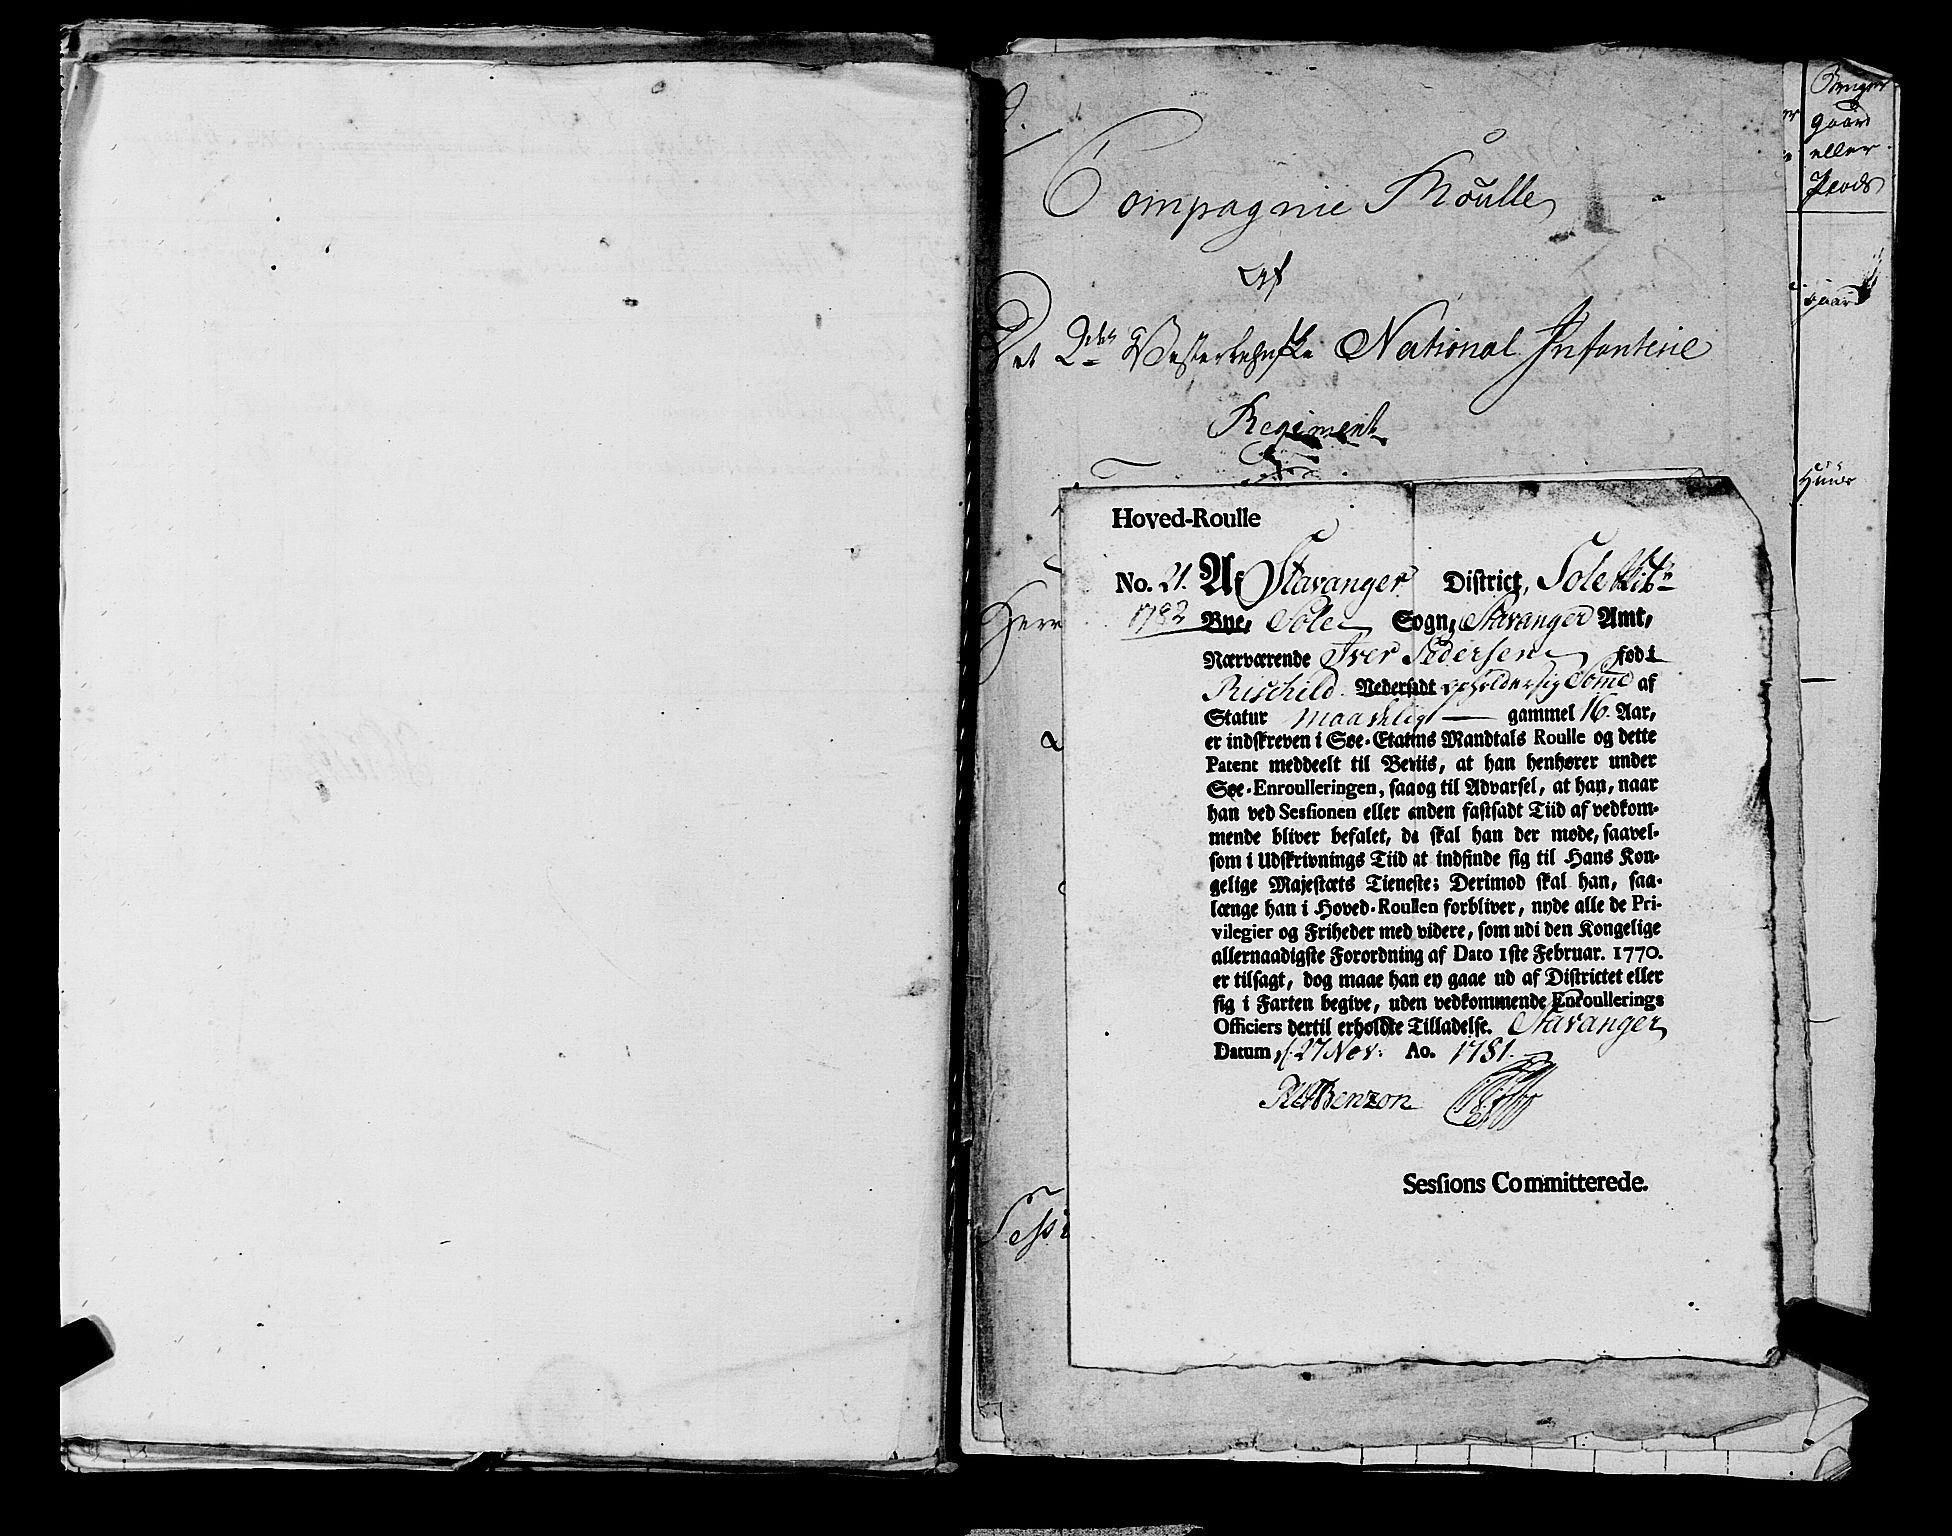 Compagnie Roulle
Af
Det 2den Vesterlehnske National Infanterie
Regiment
Herr
Sessi
Bruger
gaard
eller
Plads
gaard
Huus
Hoved-Roulle
No. 21. Af Stavanger District, Sole
1782 Bye, Sole Sogn, Stavanger Amt,
Nærværende Iver Pedersen fød i
Rischild Vedersadt opholder sig Some af
Statur maadelig gammel 16. Aar,
er indskreven i Søe-Etatens Mandtals Roulle og dette
Patent meddeelt til Beviis, at han henhører under
Søe-Enroulleringen, saaog til Advarsel, at han, naar
han ved Sessionen eller anden fastsadt Tiid af vedkom-
mende bliver befalet, da skal han der møde, saavel-
som i Udskrivnings Tiid at indfinde sig til Hans Kon-
gelige Majestæts Tieneste; Derimod skal han, saa-
længe han i Hoved-Roullen forbliver, nyde alle de Pri-
vilegier og Friheder med videre, som udi den Kongelige
allernaadigste Forordning af Dato 1ste Februar. 1770.
er tilsagt, dog maae han ey gaae ud af Districtet eller
sig i Farten begive, uden vedkommende Enroullerings
Officiers dertil erholdte Tilladelse. Stavanger
Datum, d. 27 Nov: Ao. 1781.
Benzon
Sessions Committerede.